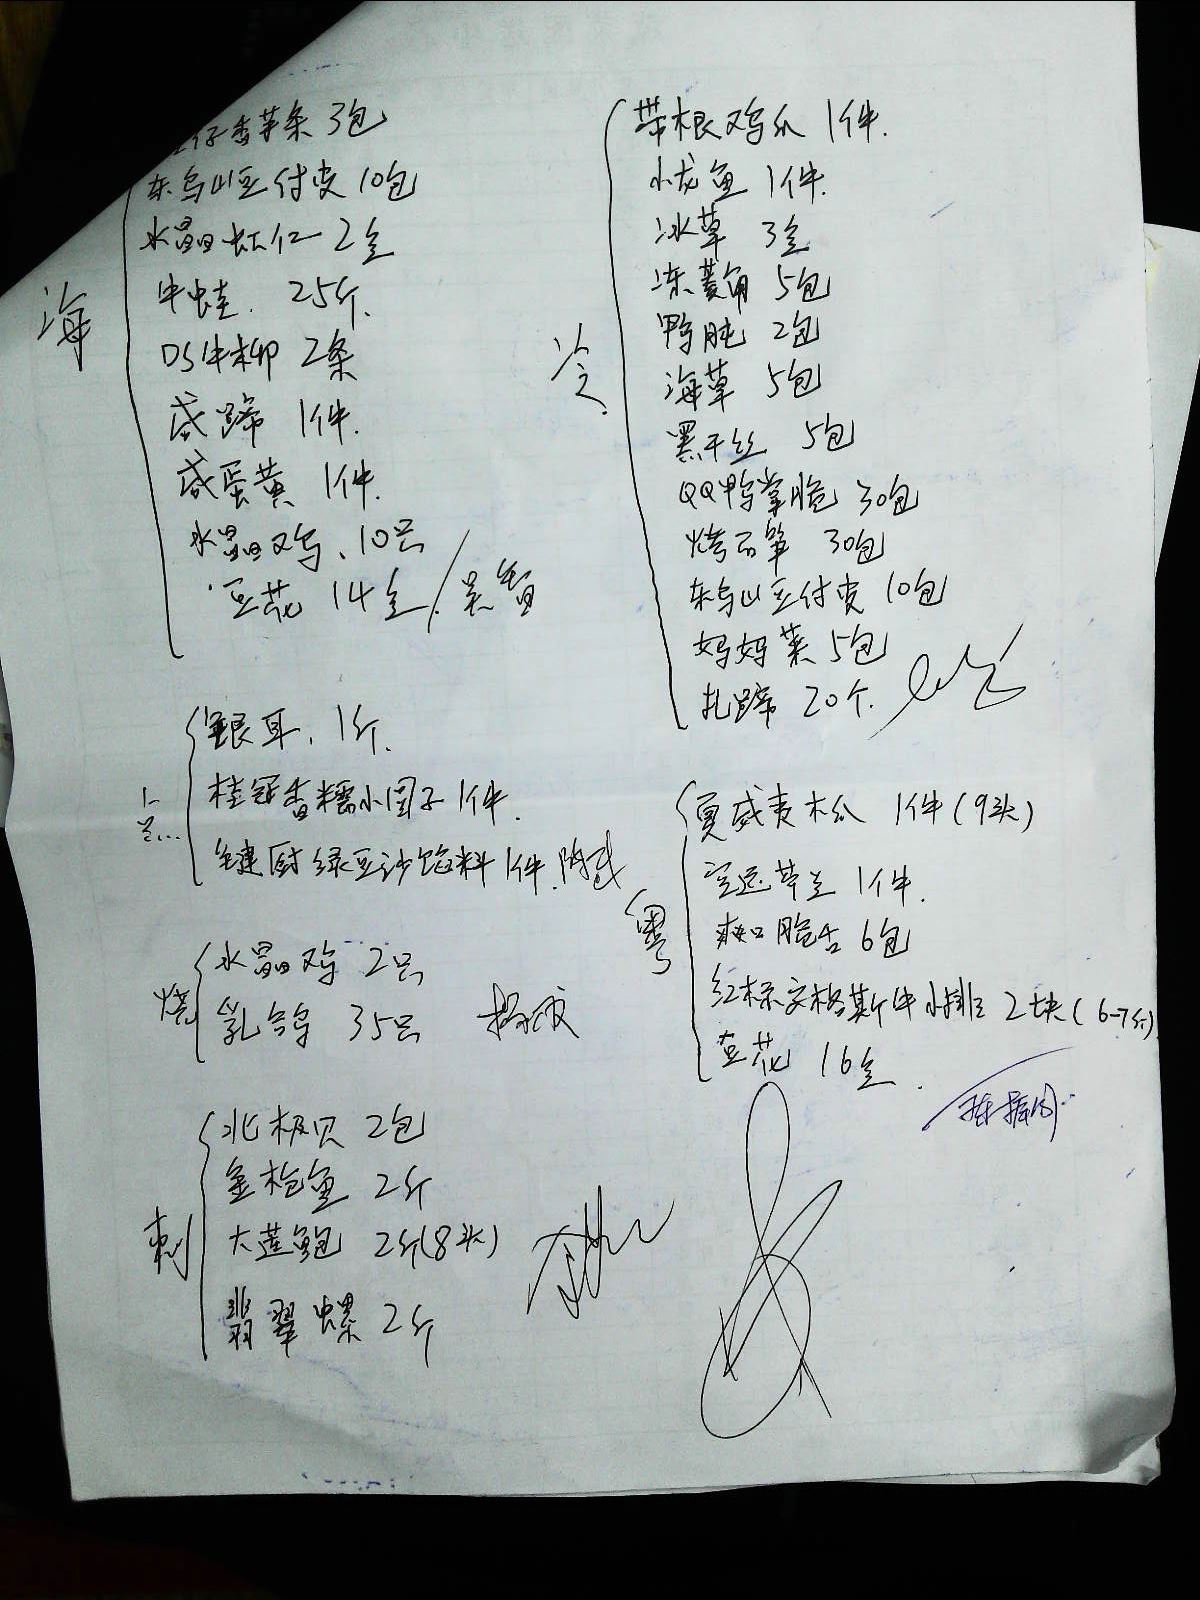 海
仔香芋条 3包
东乌山豆付皮 10包
水晶虾仁 2盒
牛蛙. 25斤.
DS牛柳 2条
咸蹄 1件.
咸蛋黄 1件.
水晶鸡. 10只
豆花 14盒/
银耳. 1斤.
桂冠香糯小圆子 1件.
厨绿豆沙馅料 1件.
烧
水晶鸡 2只
乳鸽 35只
刺
北极贝 2包
金枪鱼 2斤
大莲鲍 2斤(8头)
翡翠螺 2斤
冷
带根鸡爪 1件.
小龙鱼 1件.
冰草 3盒
冻菱角 5包
鸭肫 2包
海草 5包
黑干丝 5包
QQ鸭掌脆 30包
烤石笋 30包
东乌山豆付皮 10包
妈妈菜 5包
扎蹄 20个.
粤
夏威夷木瓜 1件(9头)
空运芥兰 1件.
爽口脆舌 6包
红标安格斯牛小排 2块(6-7斤)
豆花 16盒.